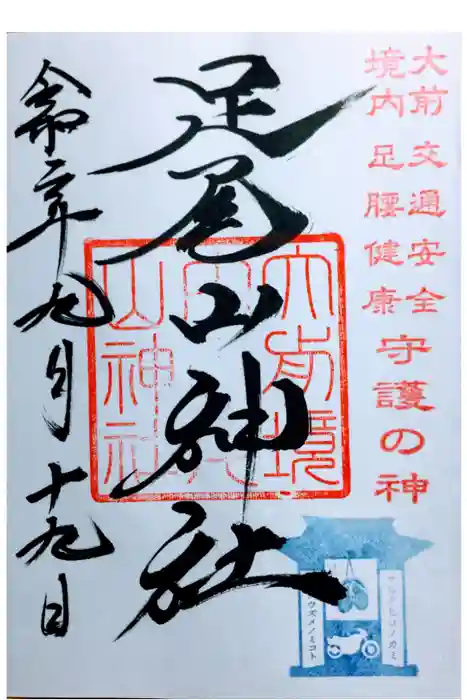 大前 交通安全
境内 足腰健康
守護の神
足尾山神社
大前境
内足尾
山神社
令和二年九月十九日
サルタヒコノカミ
ウズメノミコト